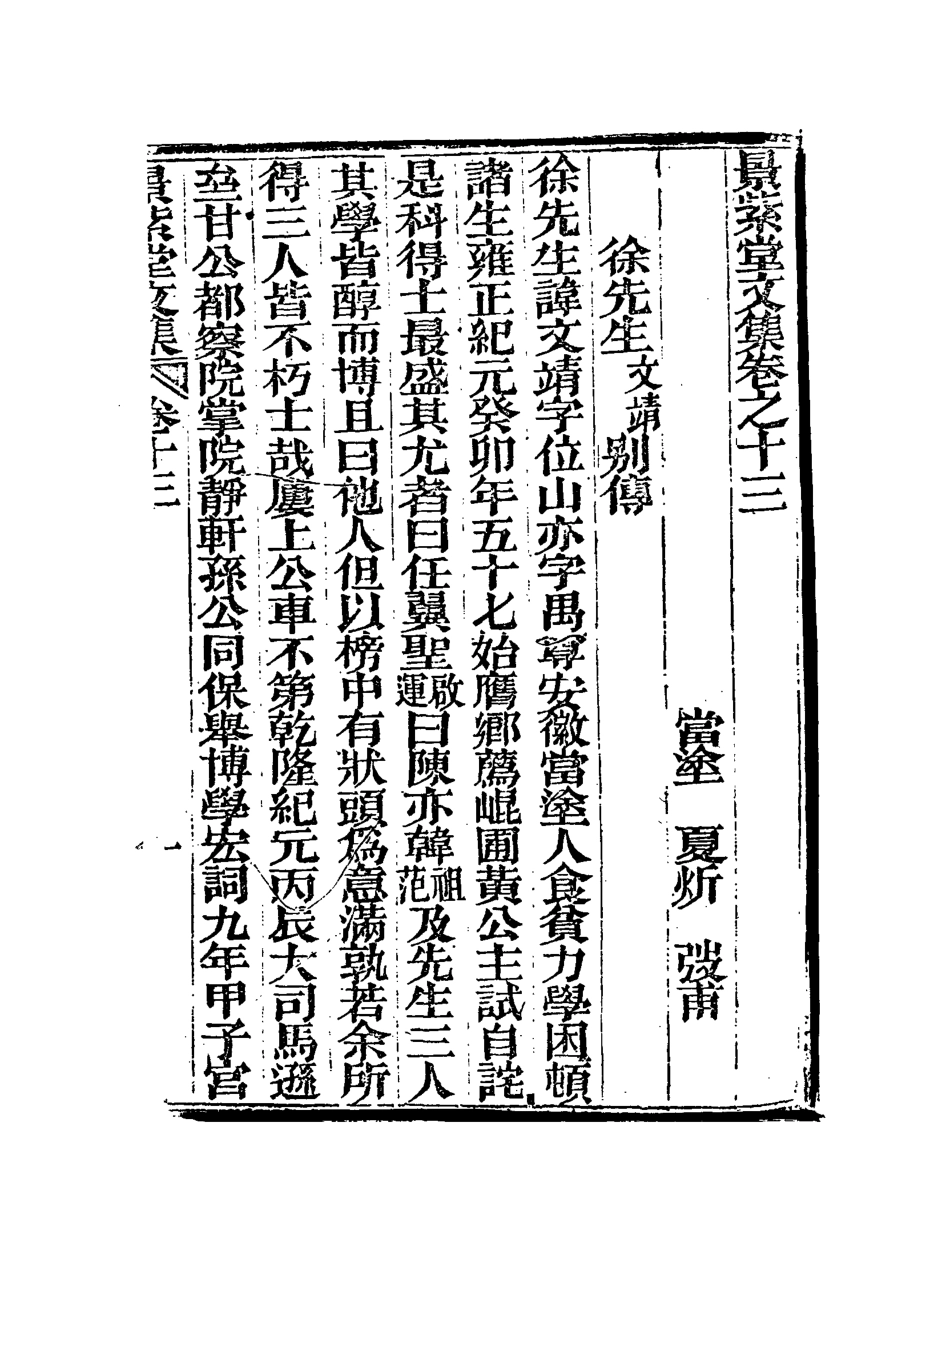 景紫堂文集卷之十三
當塗 夏炘 弢甫
徐先生文靖別傳
徐先生諱文靖字位山亦字禺尊安徽當塗人食貧力學困頓
諸生雍正紀元癸卯年五十七始膺鄉薦崐圃黃公主試自詫
是科得士最盛其尤者曰任翼聖啟運曰陳亦韓祖范及先生三人
其學皆醇而博且曰他人但以榜中有狀頭為意滿孰若余所
得三人皆不朽士哉屢上公車不第乾隆紀元丙辰大司馬遜
坴甘公都察院掌院靜軒孫公同保舉博學宏詞九年甲子宮
景紫堂文集 卷十三 一